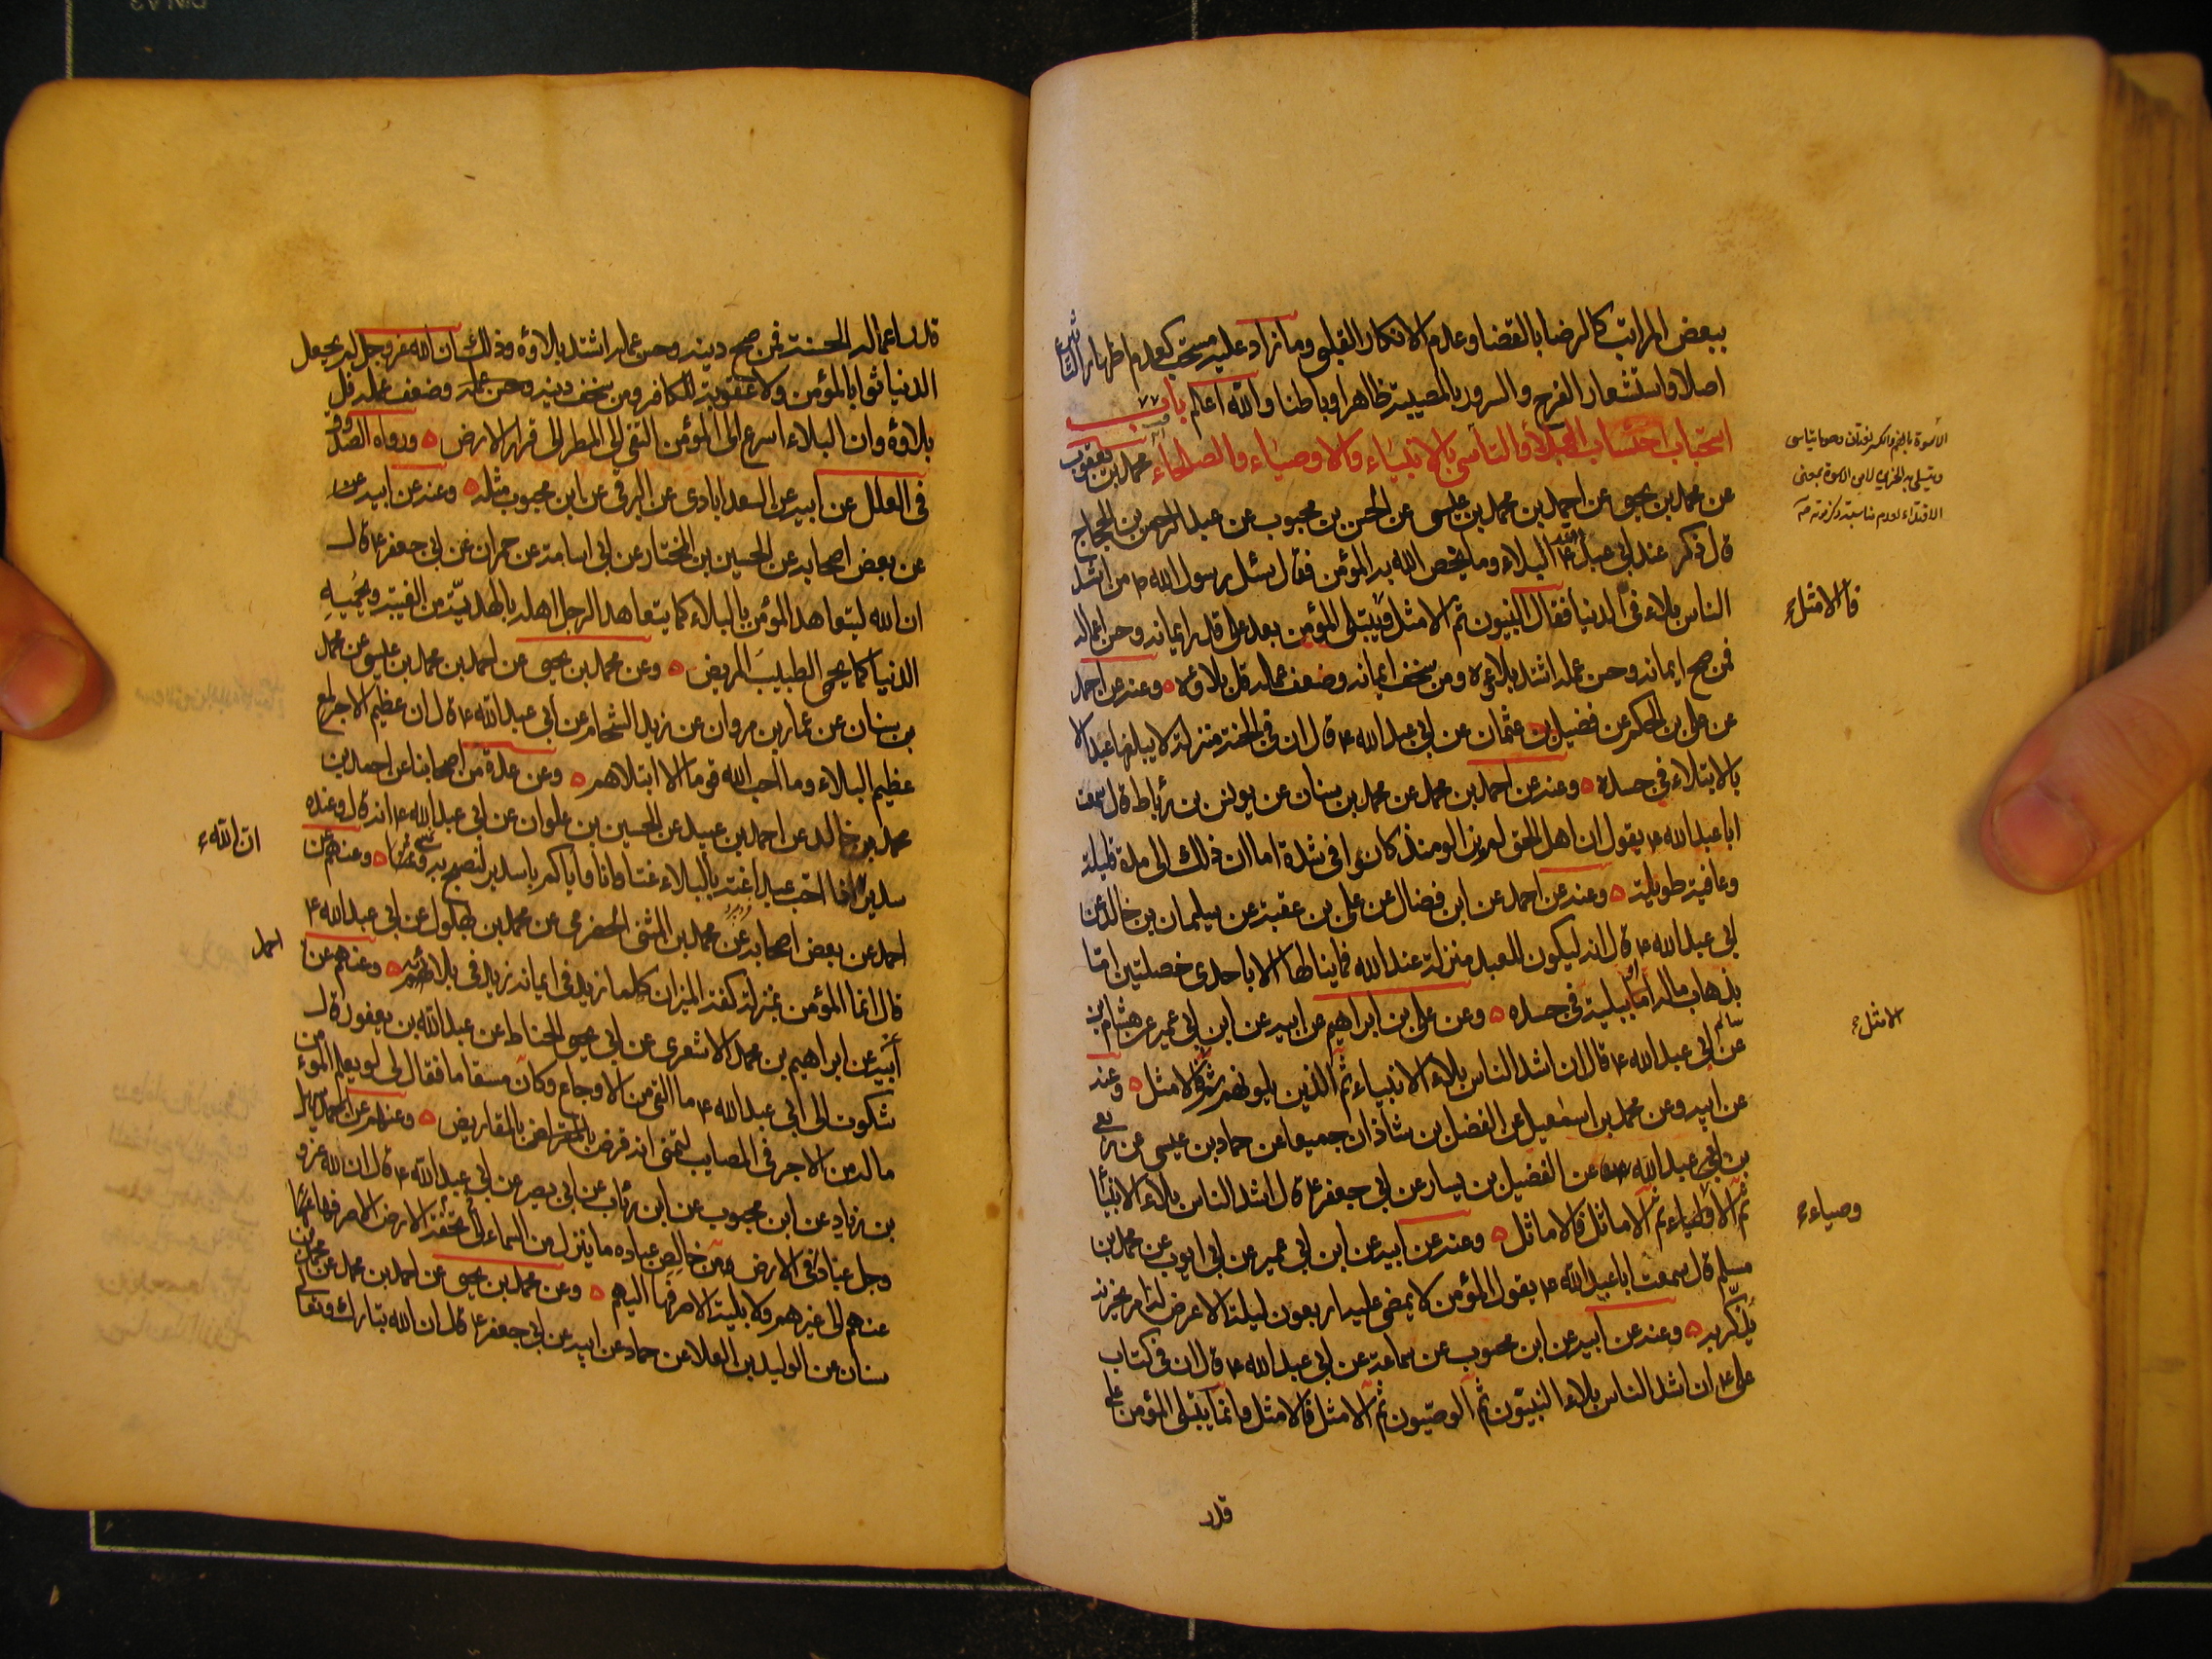 ببعض المراتب كالرضا بالقضا وعدم الانكار القلبى وما زاد عليه مستحب كعدم اظهار التأثر
اصلا واستشعار الفرح والسرور بالمصيبة ظاهرا وباطنا والله اعلم باب ٧٧
استحباب احتساب البلاء والتأسى بالانبياء والاوصياء والصلحاء محمد بن يعقوب
عن محمد بن يحيى عن احمد بن محمد بن عيسى عن الحسن بن محبوب عن عبد الرحمن بن الحجاج
قال ذكر عند ابى عبد الله ع البلاء وما يخص الله به المؤمن فقال سئل رسول الله ص من اشد
الناس بلاء فى الدنيا فقال النبيون ثم الامثل ويبتلى المؤمن بعد على قدر ايمانه وحسن اعماله
فمن صح ايمانه وحسن عمله اشتد بلاءه ومن سخف ايمانه وضعف عمله قل بلاؤه وعنه عن احمد
عن على بن الحكم عن فضيل بن عثمان عن ابى عبد الله ع قال ان فى الجنة منزلة لا يبلغها عبد الا
بالابتلاء فى جسده وعنه عن احمد بن محمد عن محمد بن سنان عن يونس بن رباط قال سمعت
ابا عبد الله ع يقول ان اهل الحق لم يزالوا منذ كانوا فى شدة اما ان ذلك الى مدة قليلة
وعافية طويلة وعنه عن احمد عن ابن فضال عن على بن عقبة عن سليمان بن خالد عن
ابى عبد الله ع قال انه ليكون للعبد منزلة عند الله فما ينالها الا باحدى خصلتين اما
بذهاب ماله او ببلية فى جسده وعن على بن ابراهيم عن ابيه عن ابن ابى عمير عن هشام بن سالم
عن ابى عبد الله ع قال ان اشد الناس بلاء الانبياء ثم الذين يلونهم ثم الامثل وعنه
عن ابيه وعن محمد بن اسمعيل عن الفضل بن شاذان جميعا عن حماد بن عيسى عن ربعى
بن عبد الله عن الفضيل بن يسار عن ابى جعفر ع قال اشد الناس بلاء الانبياء
ثم الاوصياء ثم الاماثل فالاماثل وعنه عن ابيه عن ابن ابى عمير عن ابى ايوب عن محمد بن
مسلم قال سمعت ابا عبد الله ع يقول المؤمن لا يمضى عليه اربعون ليلة الا عرض له امر يحزنه
يذكر به وعنه عن ابيه عن ابن محبوب عن سماعة عن ابى عبد الله ع قال ان فى كتاب
على ع ان اشد الناس بلاء النبيون ثم الوصيون ثم الامثل فالامثل وانما يبتلى المؤمن على
قدر
فالامثل
الامثل
وصياء
قدر اعماله الحسنة فمن صح دينه وحسن عمله اشتد بلاؤه وذلك ان الله عز وجل لم يجعل
الدنيا ثوابا لمؤمن ولا عقوبة لكافر ومن سخف دينه وضعف عمله قل
بلاؤه وان البلاء اسرع الى المؤمن التقى الى المطر الى قرار الارض ورواه الصدوق
فى العلل عن ابيه عن السعد ابادى عن البرقى عن ابن محبوب مثله وعنه عن ابيه
عن بعض اصحابه عن الحسين بن المختار عن ابى اسامة عن حمران عن ابى جعفر ع قال
ان الله ليتعاهد المؤمن بالبلاء كما يتعاهد الرجل اهله بالهدية من الغيبة ويحميه
الدنيا كما يحمى الطبيب المريض وعن محمد بن يحيى عن احمد بن محمد بن عيسى عن محمد
بن سنان عن عمار بن مروان عن زيد الشحام عن ابى عبد الله ع قال ان عظيم الاجر لمع
عظيم البلاء وما احب الله قوما الا ابتلاهم وعن عدة من اصحابنا عن احمد بن
محمد بن خالد عن احمد بن عبيد عن الحسين بن علوان عن ابى عبد الله ع انه قال وعنده
سدير اذا احب عبدا غته بالبلاء غتا وانا واياكم يا سدير لنصبح به ونمسى وعنهم عن
احمد عن بعض اصحابه عن محمد بن المثنى الحضرمى عن محمد بن بهلول عن ابى عبد الله ع
قال انما المؤمن بمنزلة كفة الميزان كلما زيد فى ايمانه زيد فى بلائه وعنهم عن
ابيه عن ابراهيم بن محمد الاشعرى عن ابى يحيى الحناط عن عبد الله بن يعفور قال
شكوت الى ابى عبد الله ع ما القى من الاوجاع وكان مسقاما فقال لى لو يعلم المؤمن
ما له من الاجر فى المصايب لتمنى انه قرض بالمقاريض وعنهم عن سهل
بن زياد عن ابن محبوب عن ابن رئاب عن ابى بصير عن ابى عبد الله ع قال ان لله عز و
وجل عبادا فى الارض من خالص عباده ما ينزل من السماء تحفة الى الارض الا صرفها
عنهم الى غيرهم ولا بلية الا صرفها اليهم وعن محمد بن يحيى عن احمد بن محمد عن محمد بن
سنان عن الوليد بن العلا عن حماد عن ابيه عن ابى جعفر ع قال ان الله تبارك وتعالى
ان الله
احمد